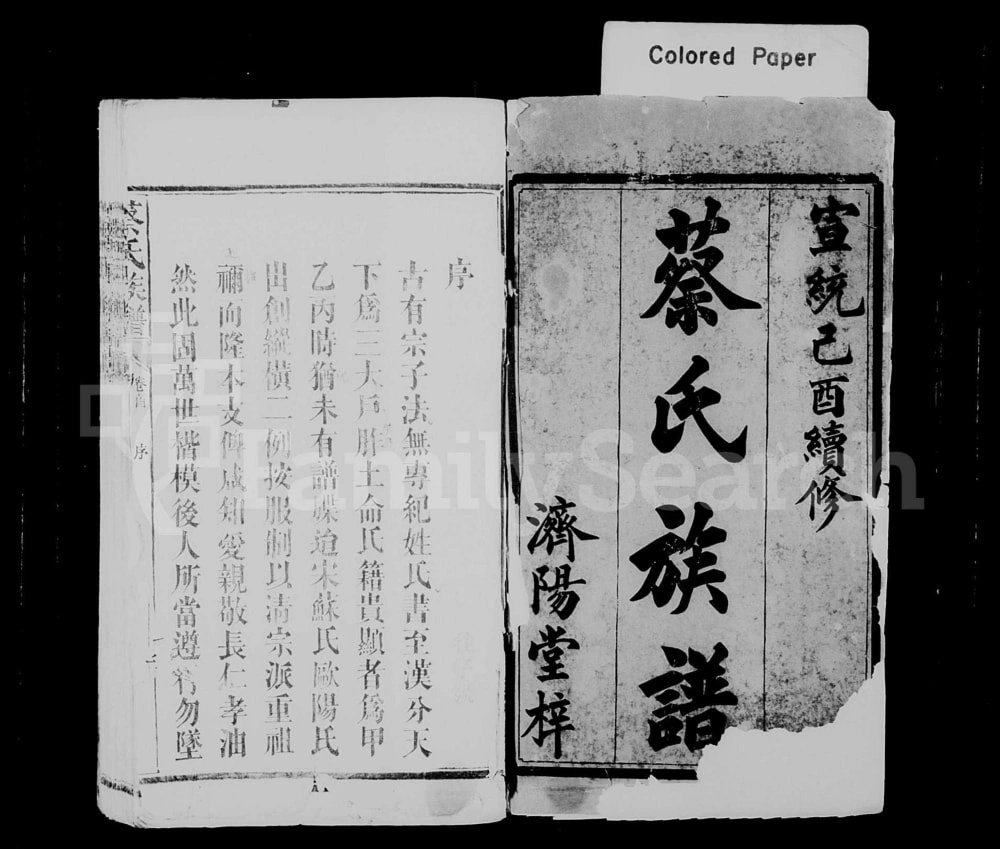 Colored Paper
宣統己酉續修
蔡氏族譜
濟陽堂梓
序
古有宗子法無專紀姓氏書至漢分天
下為三大戶胙土命氏籍貴顯者為甲
乙丙時猶未有譜牒迨宋蘇氏歐陽氏
出創縱橫二例按服制以清宗派重祖
禰而隆本支俾咸知愛親敬長仁孝油
然此固萬世楷模後人所當遵行勿墜
蔡氏族譜 卷首 序
FamilySearch